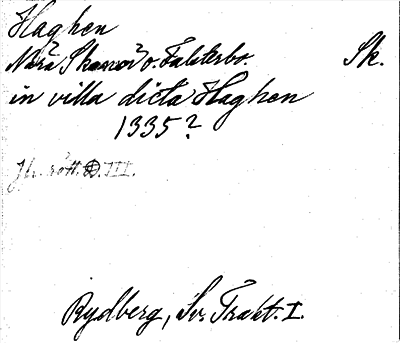 Haghen
Nära Skanör? o. Falsterbo. Sk.
in villa dicta Haghen
1335?
Jfr. rött. D. III.
Rydberg, Sv. Trakt. I.